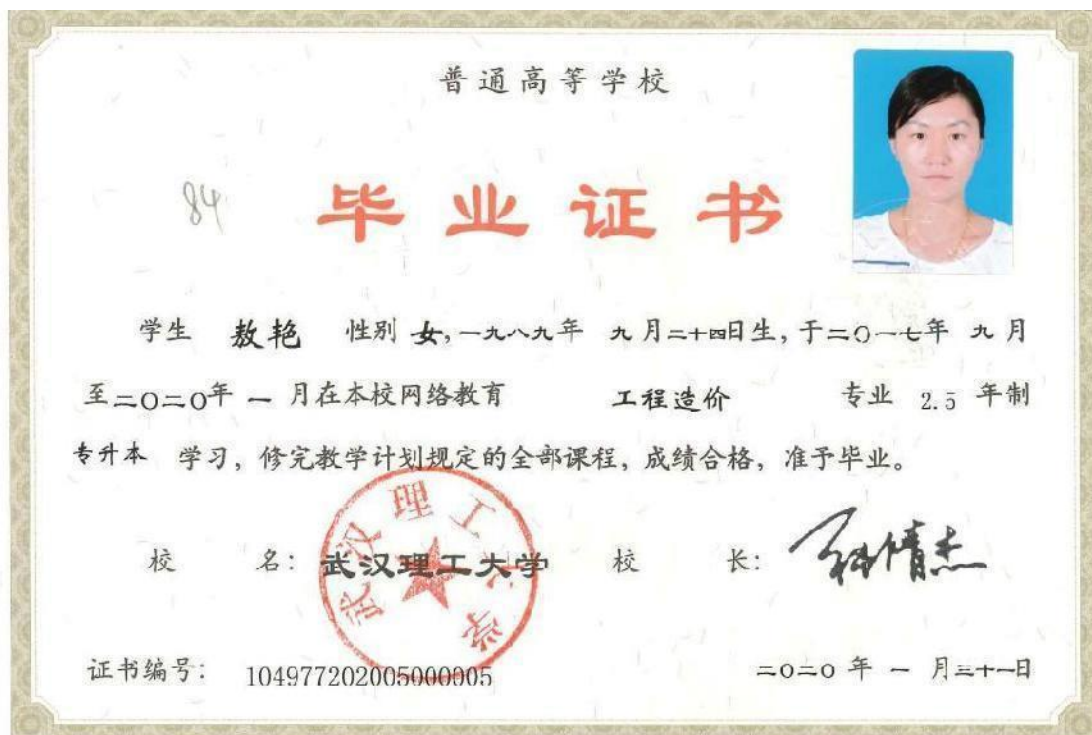 普通高等学校
84
毕业证书
学生 敖艳 性别 女,一九八九年 九月二十四日生,于二〇一七年 九月
至二〇二〇年 一 月在本校网络教育 工程造价 专业 2.5 年制
专升本 学习,修完教学计划规定的全部课程,成绩合格,准予毕业。
武汉理工大学
校 名:武汉理工大学 校 长:
证书编号: 104977202005000005 二〇二〇 年 一 月三十一日